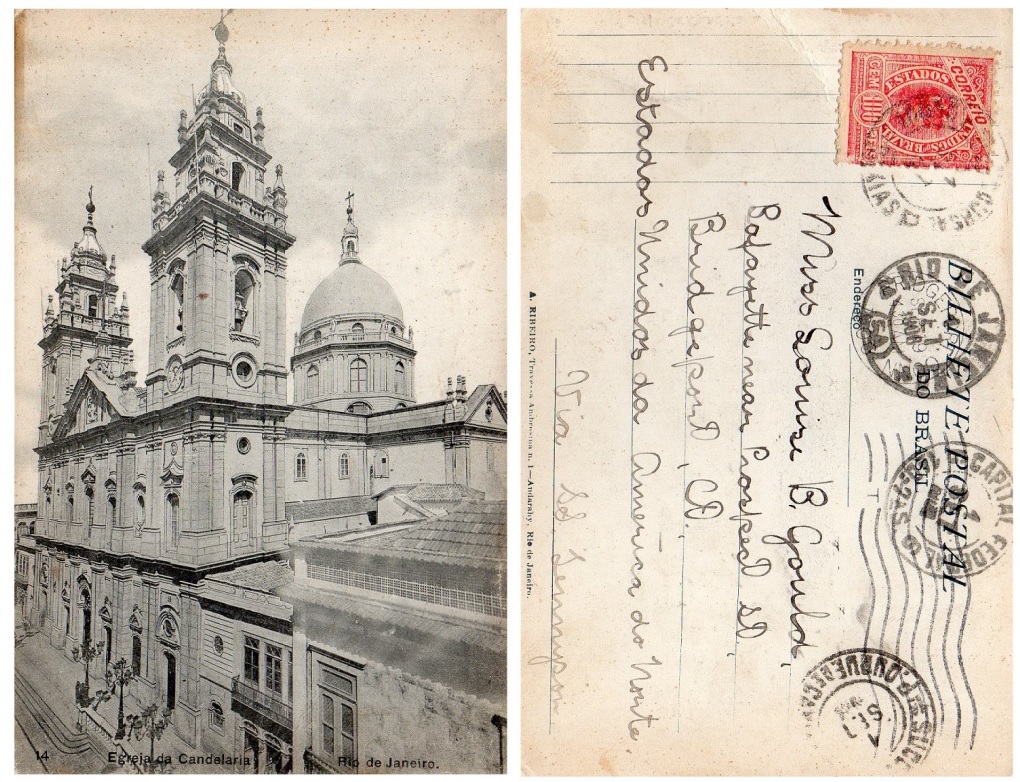 14 Egreja da Candelaria Rio de Janeiro.
BILHETE POSTAL
DO BRASIL
Endereço
CORREIO
ESTADOS UNIDOS DO BRAZIL
CEM 100 REIS
RIO DE JANEIRO
CAPITAL FEDERAL
Miss Louise B. Gould,
Lafayette near Prospect St.
Bridgeport, Ct.
Estados Unidos da America do Norte.
Via SS
A. RIBEIRO, Travessa Ambrosina n. 1—Andarahy, Rio de Janeiro.